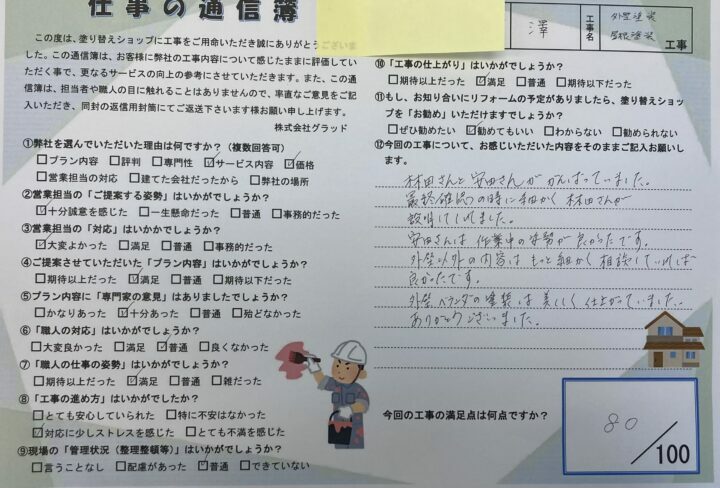 仕事の通信簿
この度は、塗り替えショップに工事をご用命いただき誠にありがとうございま
した。この通信簿は、お客様に弊社の工事内容について感じたままに評価してい
ただく事で、更なるサービスの向上の参考にさせていただきます。また、この通
信簿は、担当者や職人の目に触れることはありませんので、率直なご意見をご記
入いただき、同封の返信用封筒にてご返送下さいます様お願い申し上げます。
株式会社グラッド
澤
工事名
外壁塗装
屋根塗装
工事
①弊社を選んでいただいた理由は何ですか?(複数回答可)
□プラン内容 □評判 □専門性 ☑サービス内容 ☑価格
□営業担当の対応 □建てた会社だったから □弊社の場所
②営業担当の「ご提案する姿勢」はいかがでしょうか?
☑十分誠意を感じた □一生懸命だった □普通 □事務的だった
③営業担当の「対応」はいかかでしょうか?
☑大変よかった □満足 □普通 □事務的だった
④ご提案させていただいた「プラン内容」はいかがでしょうか?
□期待以上だった ☑満足 □普通 □期待以下だった
⑤プラン内容に「専門家の意見」はありましたでしょうか?
□かなりあった ☑十分あった □普通 □殆どなかった
⑥「職人の対応」はいかがでしょうか?
□大変良かった □満足 ☑普通 □良くなかった
⑦「職人の仕事の姿勢」はいかがでしょうか?
□期待以上だった ☑満足 □普通 □雑だった
⑧「工事の進め方」はいかがでしたか?
□とても安心していられた □特に不安はなかった
☑対応に少しストレスを感じた □とても不満を感じた
⑨現場の「管理状況(整理整頓等)」はいかがでしょうか?
□言うことなし □配慮があった ☑普通 □できていない
⑩「工事の仕上がり」はいかがでしょうか?
□期待以上だった ☑満足 □普通 □期待以下だった
⑪もし、お知り合いにリフォームの予定がありましたら、塗り替えショッ
プを「お勧め」いただけますでしょうか?
□ぜひ勧めたい ☑勧めてもいい □わからない □勧められない
⑫今回の工事について、お感じいただいた内容をそのままご記入お願いし
ます。
林田さんと安田さんががんばっていました。
最終確認の時に細かく林田さんが
説明してくれました。
安田さんは作業中の姿勢が良かったです。
外壁以外の内容はもっと細かく相談していれば
良かったです。
外壁、ベランダの塗装は美しく仕上がていました。
ありがとうございました。
今回の工事の満足点は何点ですか?
80/100